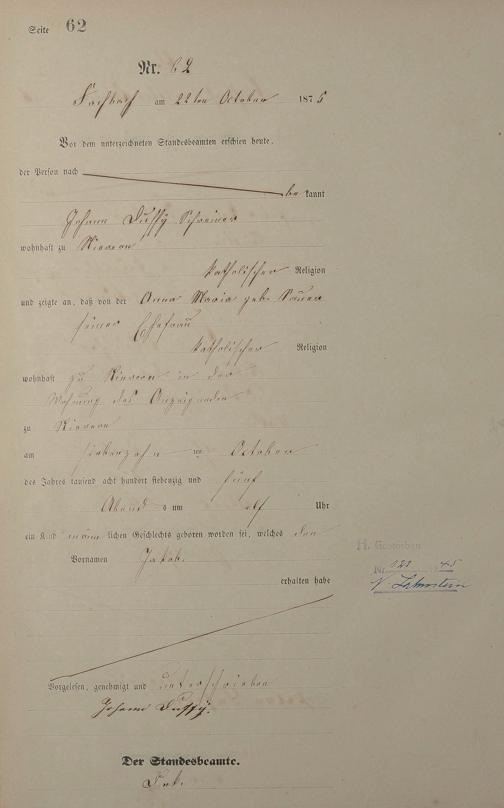 Seite 62
Nr. 62
Fachbach am 22ten October 1875
Vor dem unterzeichneten Standesbeamten erschien heute,
der Person nach
be kannt
Johann Dussy Schreiner
wohnhaft zu Nievern
katholischer Religion
und zeigte an, daß von der Anna Maria geb.
seiner Ehefrau
katholischer Religion
wohnhaft zu Nievern in der
Wohnung des Anzeigenden
zu Nievern
am siebenzehn ten October
des Jahres tausend acht hundert siebenzig und fünf
Abend s um elf Uhr
ein Kind männ lichen Geschlechts geboren worden sei, welches den
Vornamen Jakob.
erhalten habe
Vorgelesen, genehmigt und unterschrieben
Johann Dussy.
Der Standesbeamte.
H. Gestorben
Nr. 45
N. Lahnstein